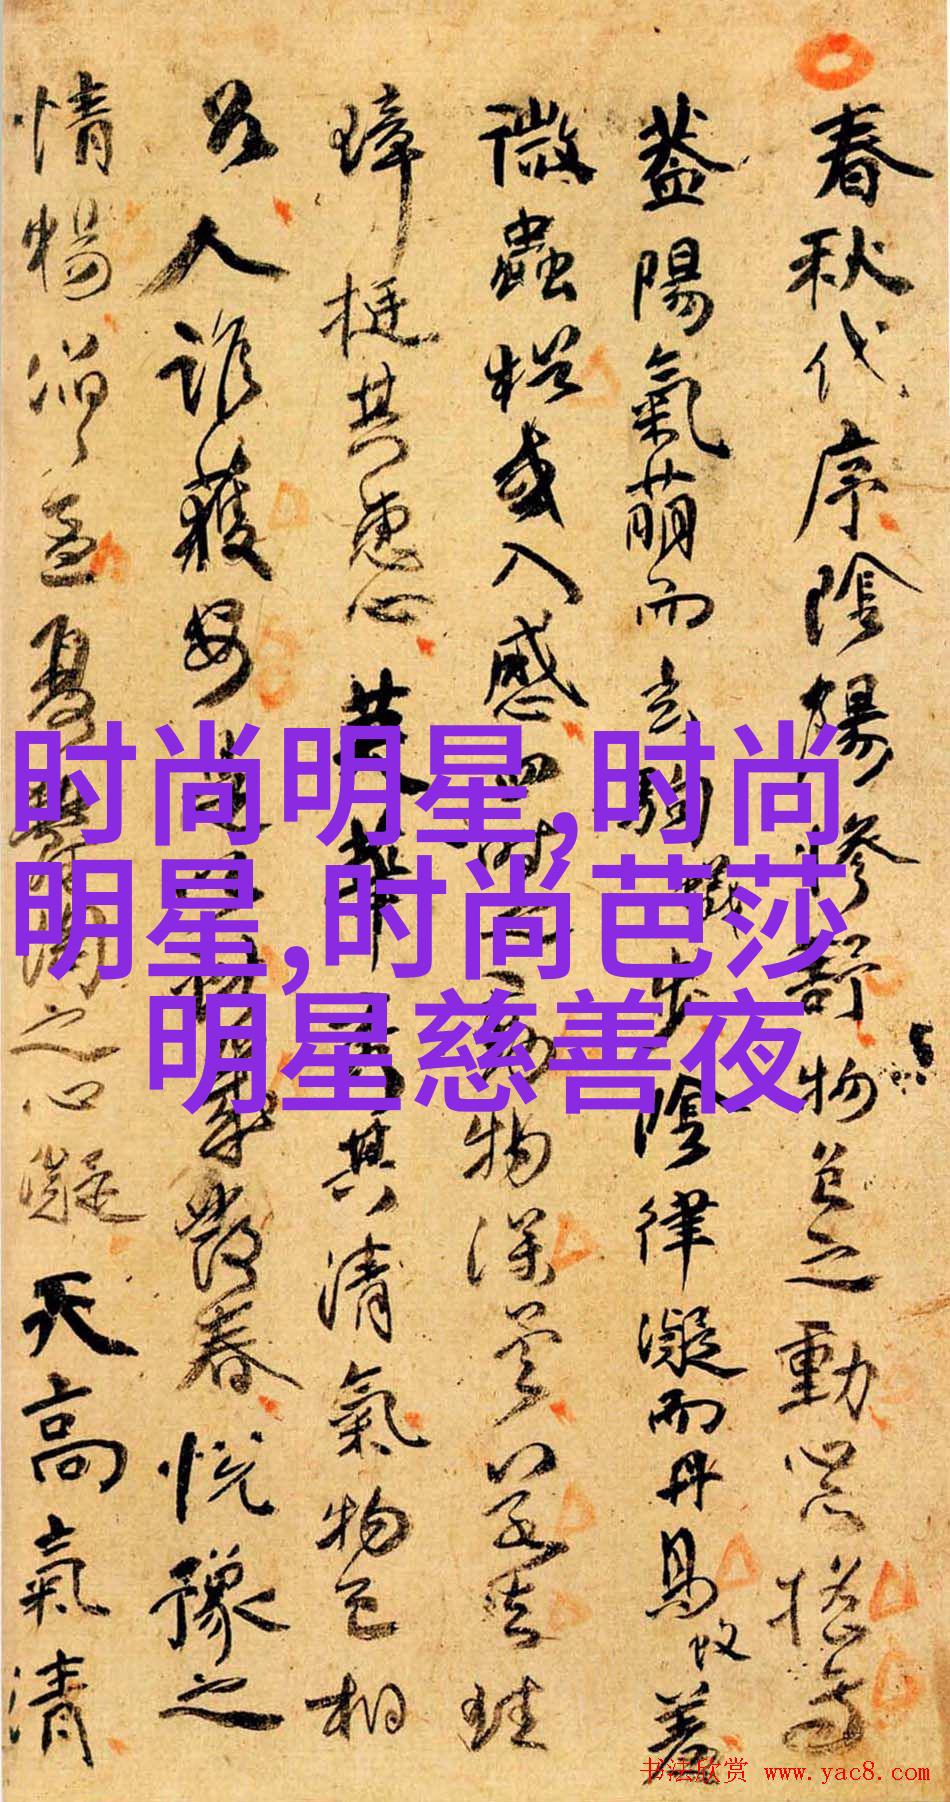 春秋代序陰陽慘舒物色之動心亦搖焉
蓋陽氣萌而玄駒步陰律凝而丹鳥羞
微蟲猶或入感四時之動物深矣若夫珪
璋挺其惠心英華秀其清氣物色相
召人誰獲安是以獻歲發春悅豫之
情暢滔滔孟夏鬱陶之心凝天高氣清
时尚明星,时尚
明星,时尚芭莎
明星慈善夜
书法欣赏 www.yac8.com